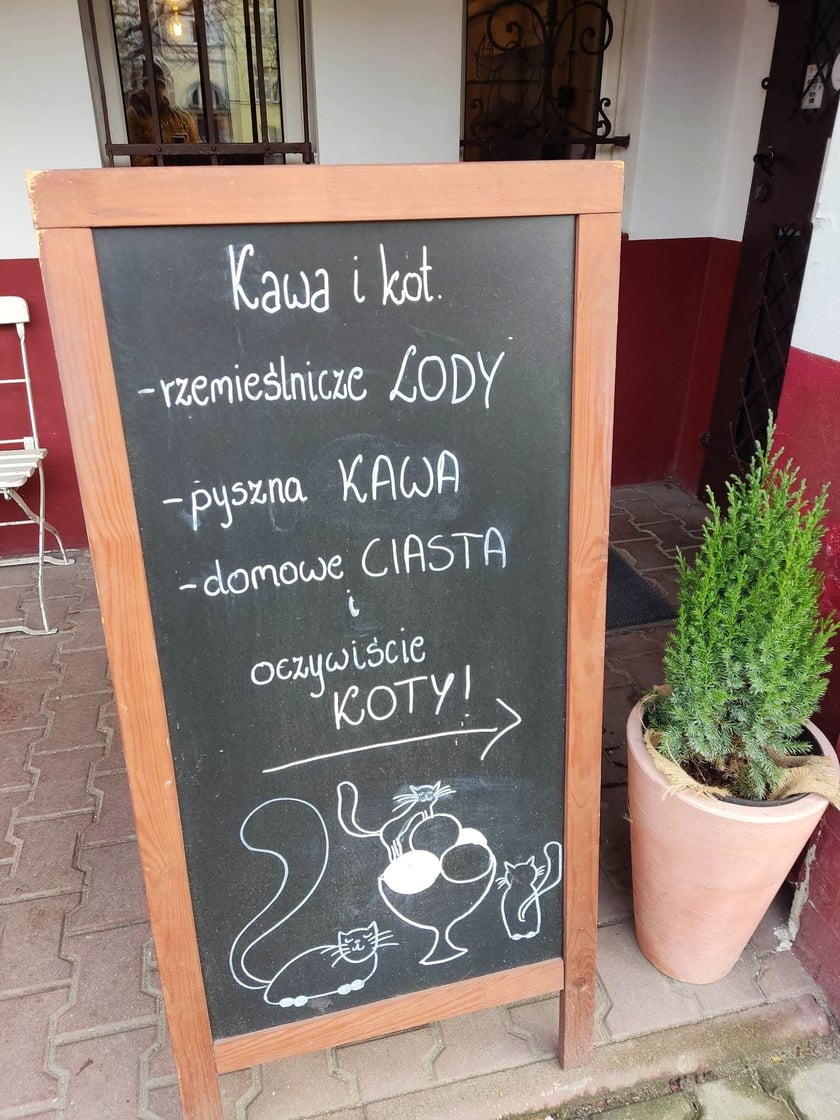 Kawa i kot.
-rzemieślnicze LODY
-pyszna KAWA
-domowe CIASTA
i
oczywiście
KOTY!